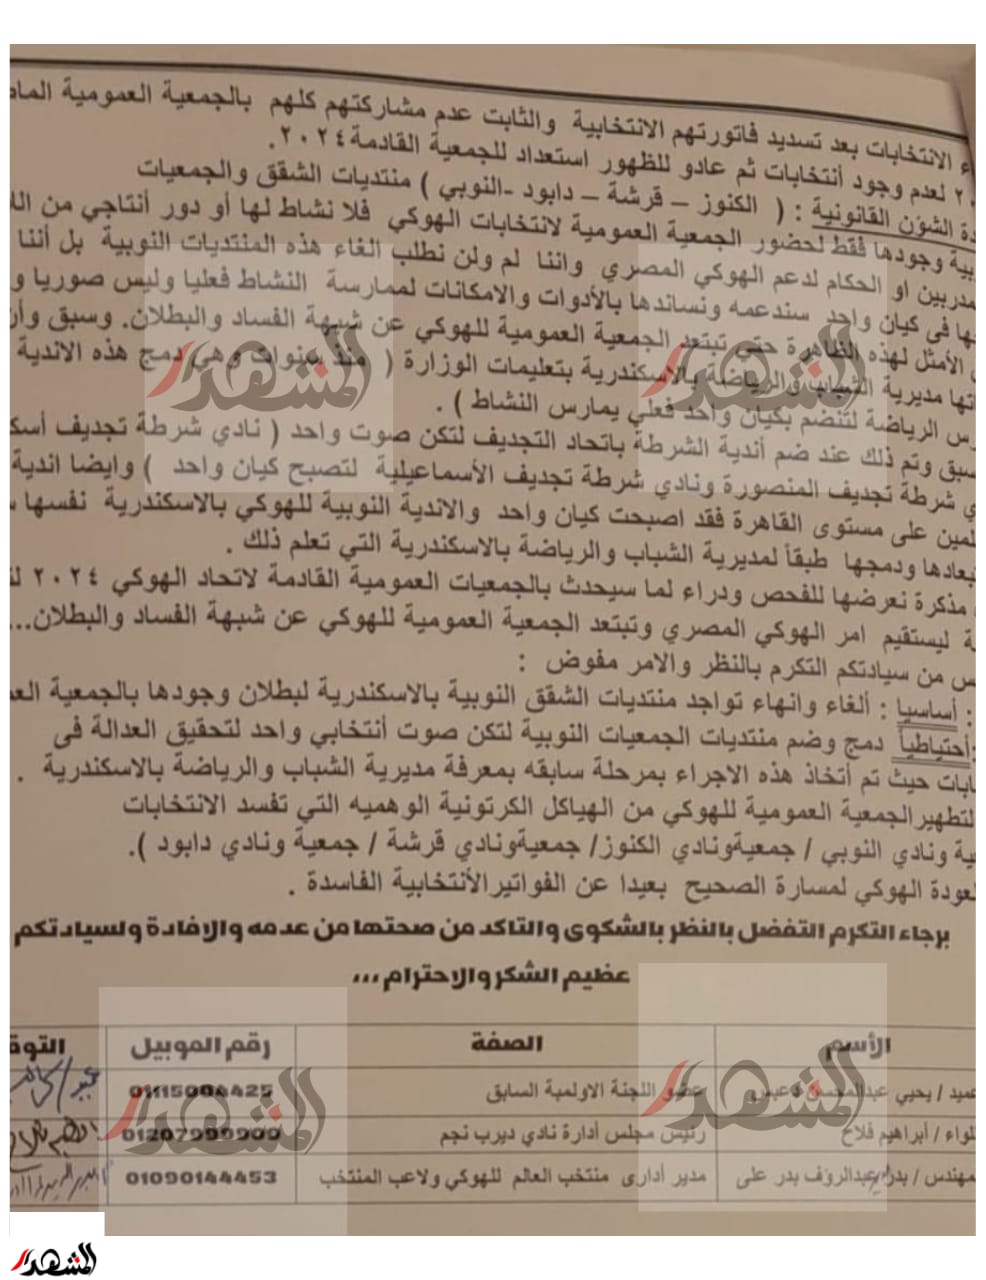 ء الانتخابات بعد تسديد فاتورتهم الانتخابية والثابت عدم مشاركتهم كلهم بالجمعية العمومية الماض
٢٠ لعدم وجود أنتخابات ثم عادو للظهور استعداد للجمعية القادمة ٢٠٢٤.
دة الشؤن القانونية : ( الكنوز – قرشة – دابود -النوبي ) منتديات الشقق والجمعيات
وبية وجودها فقط لحضور الجمعية العمومية لانتخابات الهوكي فلا نشاط لها أو دور أنتاجي من اللا
مدربين او الحكام لدعم الهوكي المصري واننا لم ولن نطلب الغاء هذه المنتديات النوبية بل أننا
ها فى كيان واحد سندعمه ونساندها بالأدوات والامكانات لممارسة النشاط فعليا وليس صوريا و
الأمثل لهذه الظاهرة حتي تبتعد الجمعية العمومية للهوكي عن شبهة الفساد والبطلان. وسبق وأن
اتها مديرية الشباب والرياضة بالاسكندرية بتعليمات الوزارة ( منذ سنوات وهي دمج هذه الاندية
رس الرياضة لتنضم بكيان واحد فعلي يمارس النشاط ) .
سبق وتم ذلك عند ضم أندية الشرطة باتحاد التجديف لتكن صوت واحد ( نادي شرطة تجديف أسك
ي شرطة تجديف المنصورة ونادي شرطة تجديف الأسماعيلية لتصبح كيان واحد ) وايضا اندية
لمين على مستوى القاهرة فقد اصبحت كيان واحد والاندية النوبية للهوكي بالاسكندرية نفسها س
بعادها ودمجها طبقاً لمديرية الشباب والرياضة بالاسكندرية التي تعلم ذلك .
مذكرة نعرضها للفحص ودراء لما سيحدث بالجمعيات العمومية القادمة لاتحاد الهوكي ٢٠٢٤ لن
ة ليستقيم امر الهوكي المصري وتبتعد الجمعية العمومية للهوكي عن شبهة الفساد والبطلان...
س من سيادتكم التكرم بالنظر والامر مفوض :
: أساسيا : ألغاء وانهاء تواجد منتديات الشقق النوبية بالاسكندرية لبطلان وجودها بالجمعية العم
:أحتياطياً دمج وضم منتديات الجمعيات النوبية لتكن صوت أنتخابي واحد لتحقيق العدالة فى
ابات حيث تم أتخاذ هذه الاجراء بمرحلة سابقه بمعرفة مديرية الشباب والرياضة بالاسكندرية .
لتطهيرالجمعية العمومية للهوكي من الهياكل الكرتونية الوهميه التي تفسد الانتخابات
ية ونادي النوبي / جمعيةونادي الكنوز/ جمعيةونادي قرشة / جمعية ونادي دابود ).
لعودة الهوكي لمسارة الصحيح بعيدا عن الفواتيرالأنتخابية الفاسدة .
برجاء التكرم التفضل بالنظر بالشكوى والتاكد من صحتها من عدمه والافادة ولسيادتكم
عظيم الشكر والاحترام ،،،
الأسم الصفة رقم الموبيل التوق
عميد / يحيي عبدالمحسن دعبس عضو اللجنة الاولمبية السابق 01115004425
لواء / أبراهيم فلاح رئيس مجلس أدارة نادي ديرب نجم 01207999909
مهندس / بدر عبدالروف بدر على مدير أدارى منتخب العالم للهوكي ولاعب المنتخب 01090144453
المشهد
المشهد
المشهد
المشهد
المشهد